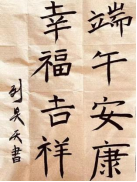 端午安康
幸福吉祥
刘昊天書